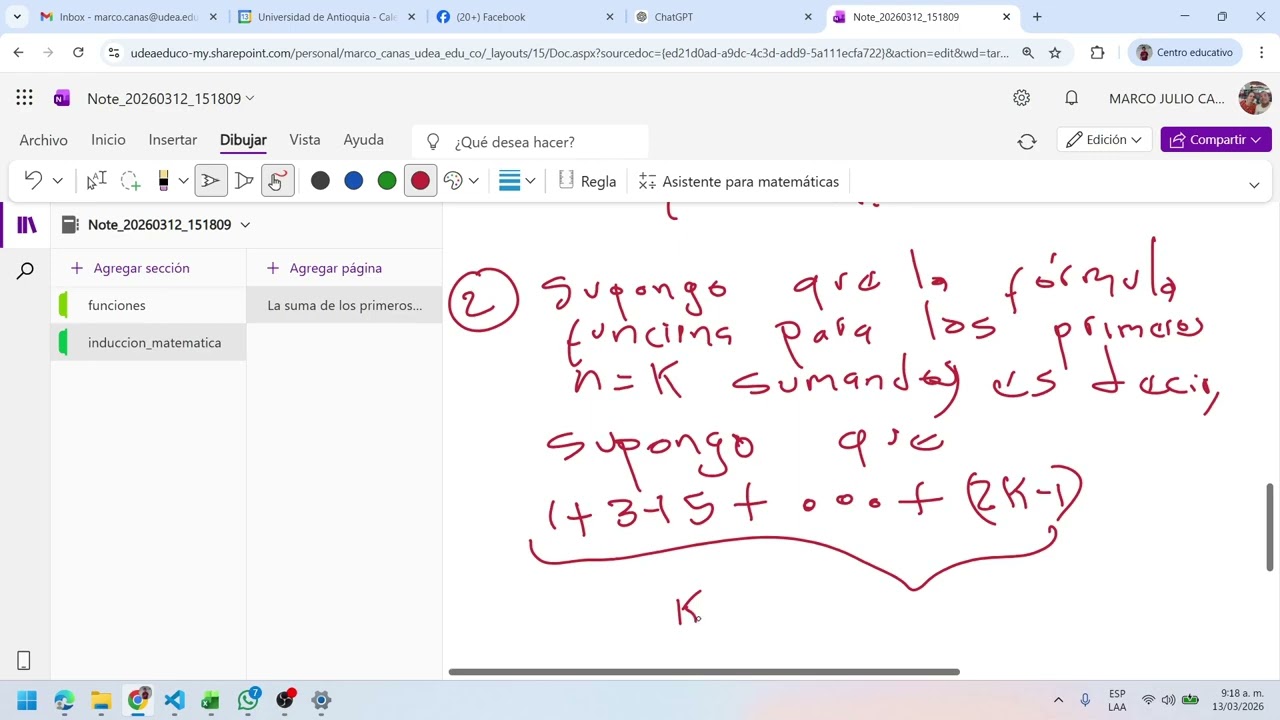 Inbox - marco.canas@udea.edu.c
Universidad de Antioquia - Cale
(20+) Facebook
ChatGPT
Note_20260312_151809
udeaeduco-my.sharepoint.com/personal/marco_canas_udea_edu_co/_layouts/15/Doc.aspx?sourcedoc={ed21d0ad-a9dc-4c3d-add9-5a111ecfa722}&action=edit&wd=tar...
Centro educativo
Note_20260312_151809
MARCO JULIO CA...
Archivo Inicio Insertar Dibujar Vista Ayuda ¿Qué desea hacer? Edición Compartir
Regla Asistente para matemáticas
Note_20260312_151809
Agregar sección Agregar página
funciones La suma de los primeros...
induccion_matematica
2 supongo que la fórmula
funciona para los primeros
n = K sumandos es decir,
supongo que
1+3+5+ ... + (2K-1)
K
7
ESP
LAA
9:18 a. m.
13/03/2026